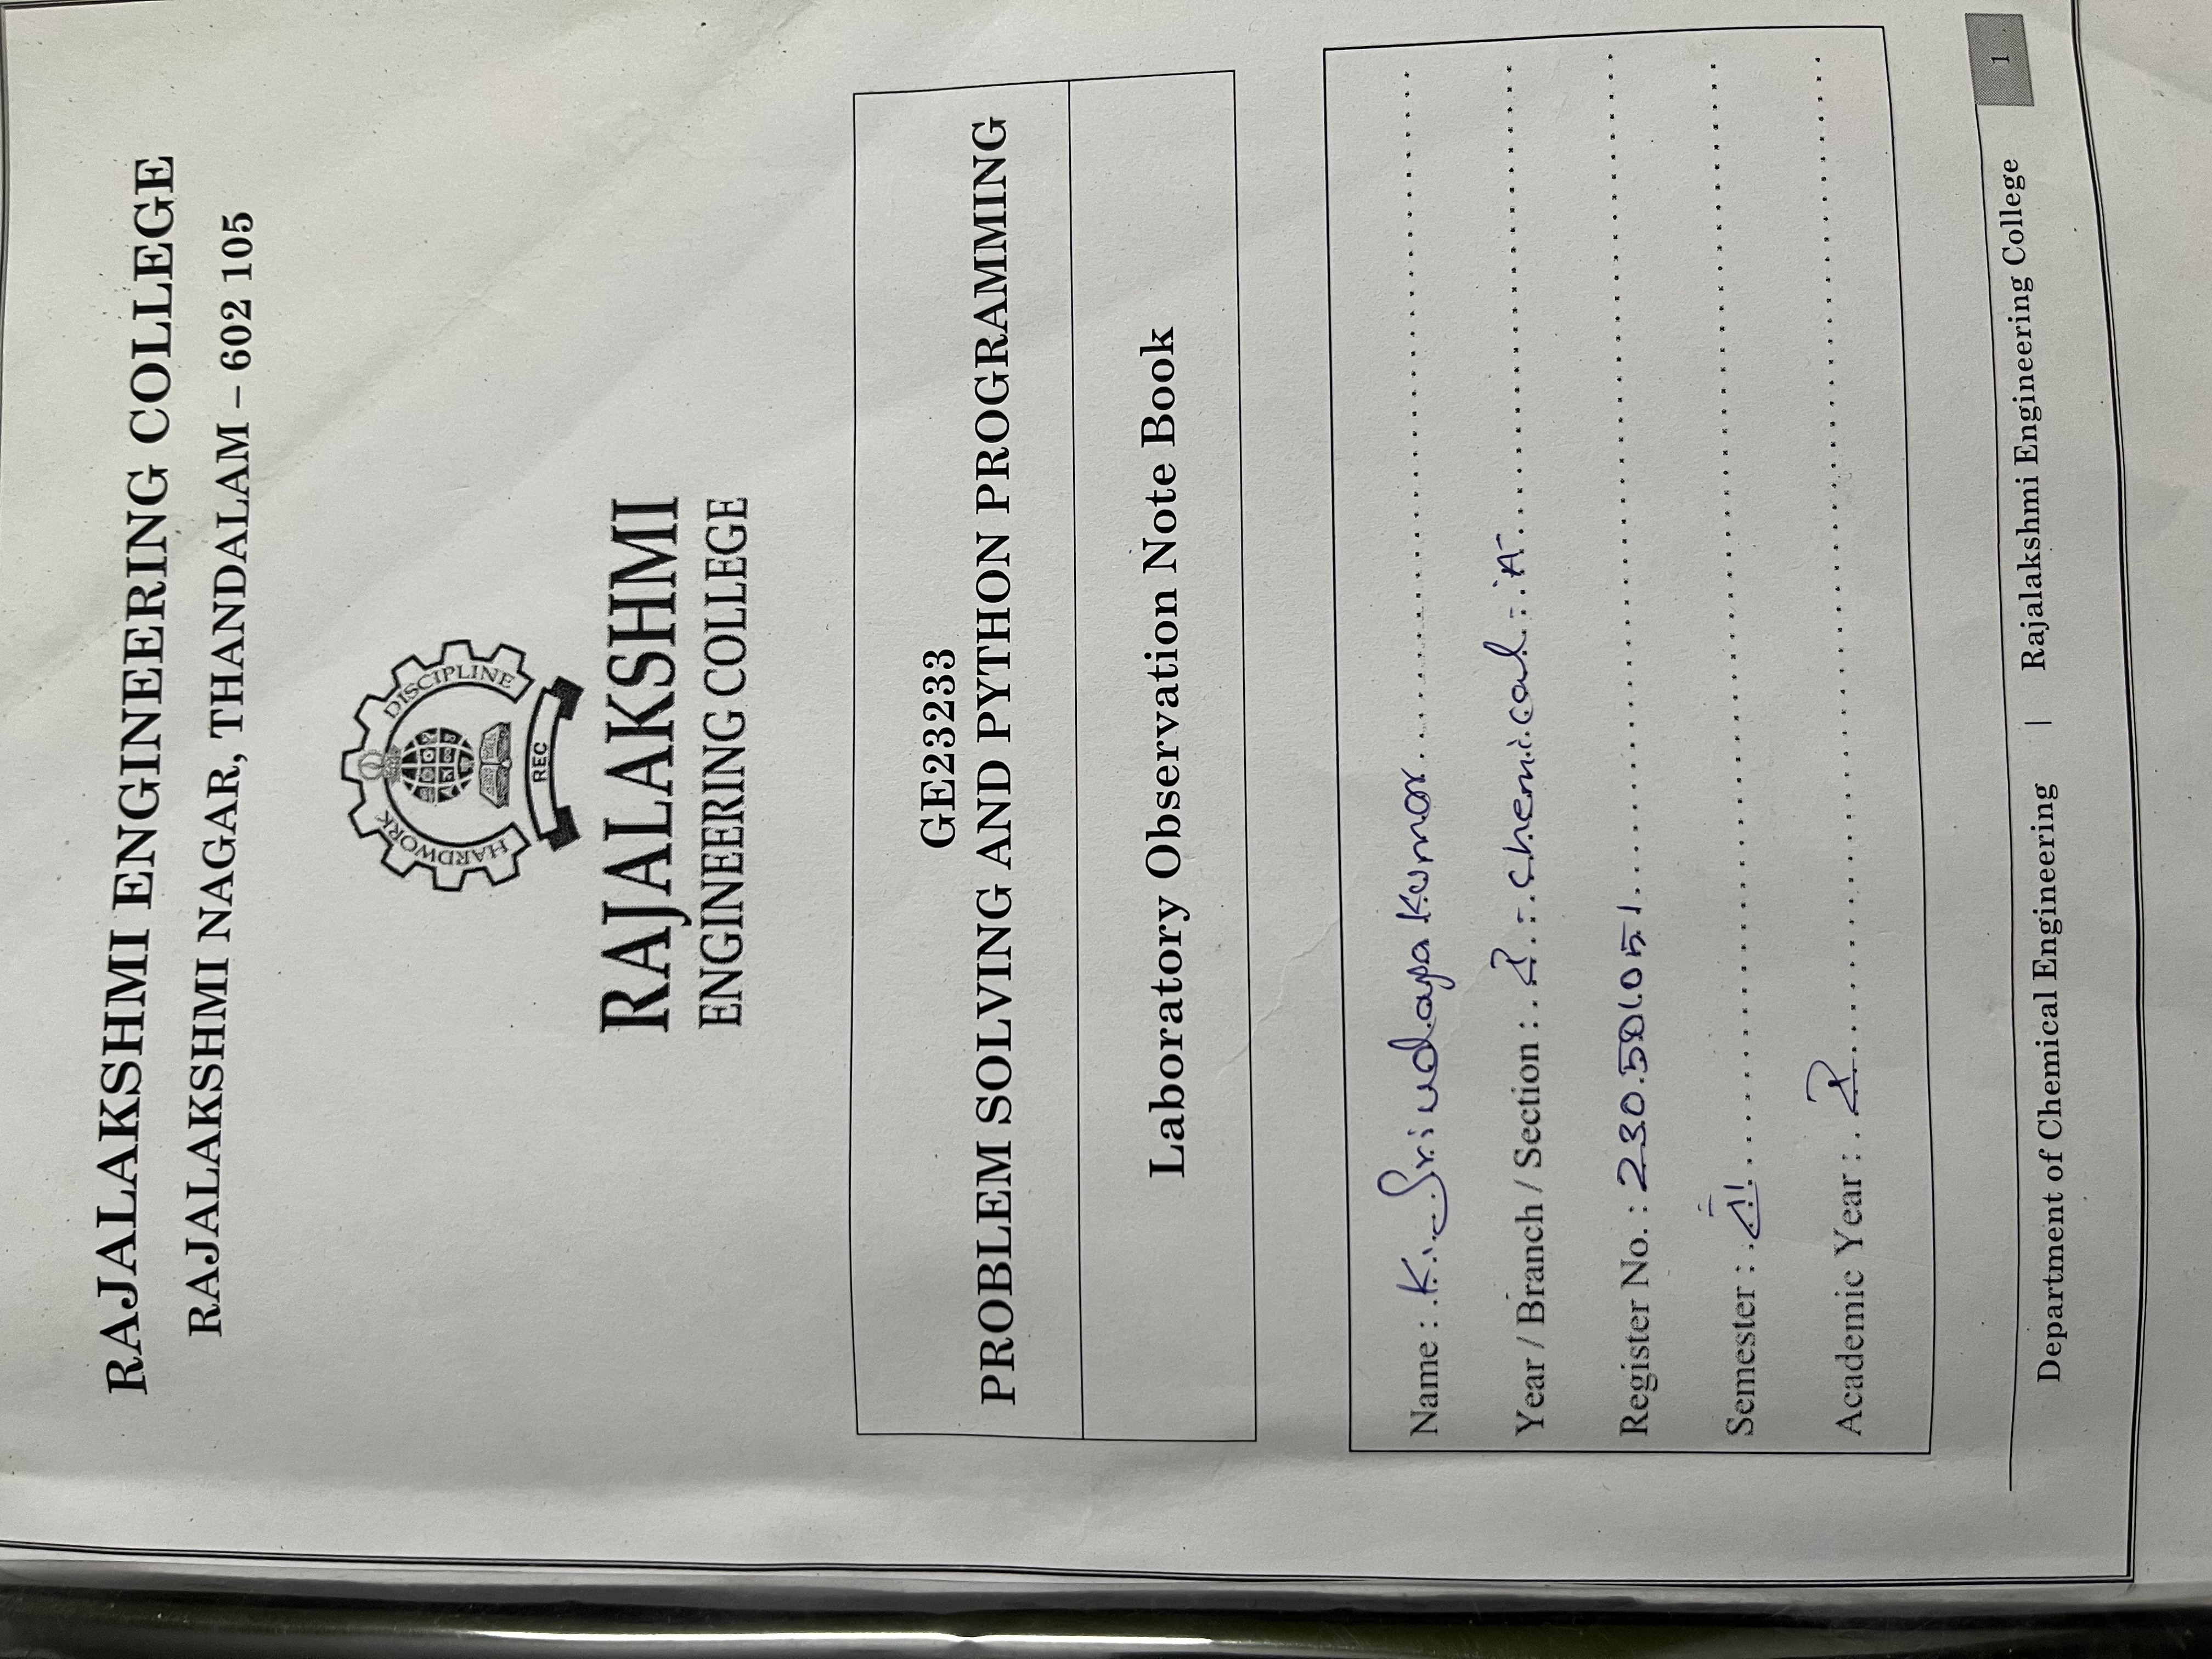 RAJALAKSHMI ENGINEERING COLLEGE
RAJALAKSHMI NAGAR, THANDALAM – 602 105
HARDWORK DISCIPLINE
REC
RAJALAKSHMI
ENGINEERING COLLEGE
GE23233
PROBLEM SOLVING AND PYTHON PROGRAMMING
Laboratory Observation Note Book
Name : K. Sriudaya Kumar
Year / Branch / Section : I - chemical - 'A'
Register No. : 230501051
Semester : II
Academic Year : I
Department of Chemical Engineering | Rajalakshmi Engineering College 1